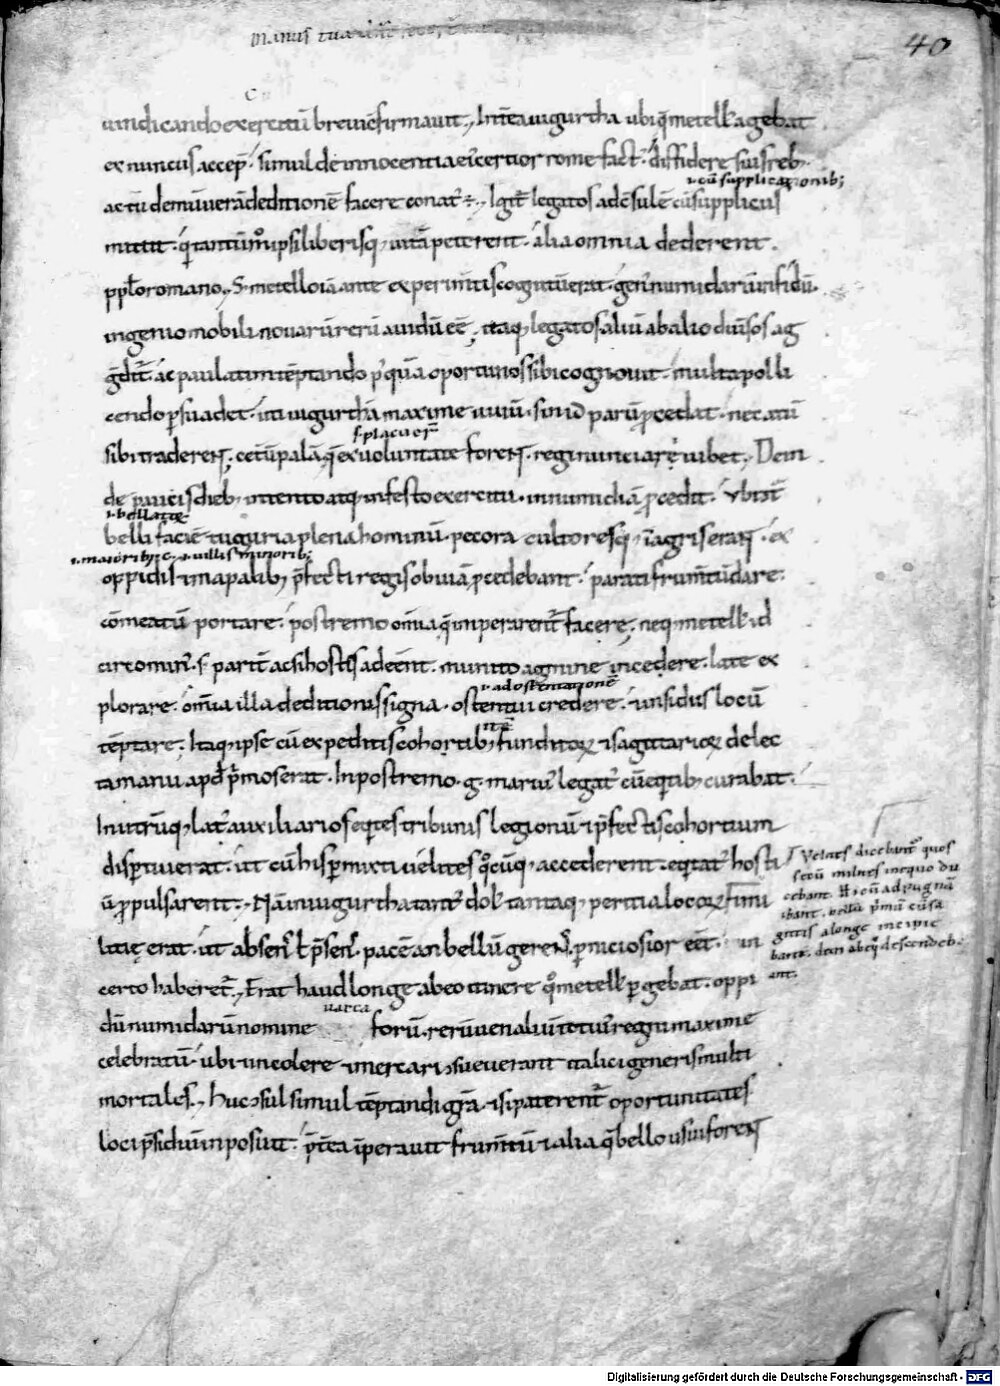 manus tua
40
uindicando exercitū breui cfirmauit. Intea iugurtha ubi q̄ metell' agebat
ex nunciis accep. simul de innocentia ei' certior rome fact'. diffidere suis reb;
.i. cū supplicationib;
ac tū demū uerā deditionē facere conat' ÷. Igit' legatos ad c̄sulē cū suppliciis
mittit. q' tantūm' ipsi liberisq; uitā peterent. alia omnia dederent
pplo romano. S; metello iā ante experim̄tis cognitū erat. gen' numidarū infidū.
ingenio mobili nouarū rerū auidū eē. itaq; legatos aliū ab alio diuersos ag
gdit'. ac paulatim tēptando p' quā oportunos sibi cognouit. multa polli
cendo psuadet. uti iugurthā maxime uiuū. sin id parū pcedat. necatū
.s. placuer̄
sibi traderent. cetū palā q̄ ex uoluntate forent. regi nunciare iubet. Dein
de paucis dieb; intento atq; infesto exercitu. in numidiā pcedit. Vbi 
.i. bellatę
belli faciē tuguria plena hominū. pecora cultoresq; i agris erant. ex
.i. maiorib; c. .i. uillis minorib;
oppidis & mapalib; p̄fecti regis obuiā pcedebant. parati frum̄tū dare.
cōmeatū portare. postremo om̄ia q̄ imperarent' facere. neq; metell' id
circo min'. s; parit' ac si hostes adeēnt. munito agmine incedere. late ex
plorare. om̄ia illa deditionis signa
.i. ad ostentationē
ostentui credere. & insidiis locū
tēptare. Itaq; ipse cū expeditis cohortib; funditor; & sagittarior; delec
ta manu apd p̄mos erat. In postremo. g. mariu' legat' cū eq̄tib; curabat.
In utrūq; lat' auxiliarios eq̄tes tribunis legionū & p̄fectis cohortium
disptiuerat. ut cū his pmixti uelites q°cūq; accederent. eq̄tat' hosti
ū ppulsarent. Nā in iugurtha tant' dol' tantaq; peritia locor; & mi
litię erat. ut absens l p̄sens. pacē an bellū gerens. pniciosior eēt. in
certo haberet'. Erat haud longe ab eo itinere q° metell' pgebat. oppi
uacca
dū numidarū nomine forū rerū uenaliū toti' regni maxime
celebratū. ubi & incolere & mercari c̄sueuerant italici generis multi
mortales. Huc c̄sul simul tēptandi gr̄a & si paterent' oportunitates
loci p̄sidiū inposuit. p̄tea īperauit frum̄tū & alia q̄ bello usui forent
Velites dicebant' quos
secū milites in equo du
cebant. Hi cū ad pugnā
ibant. bella p̄mū cū sa
gittis a longe incipie
bant. dein ab eq̄ descendeb
ant.
Digitalisierung gefördert durch die Deutsche Forschungsgemeinschaft - DFG